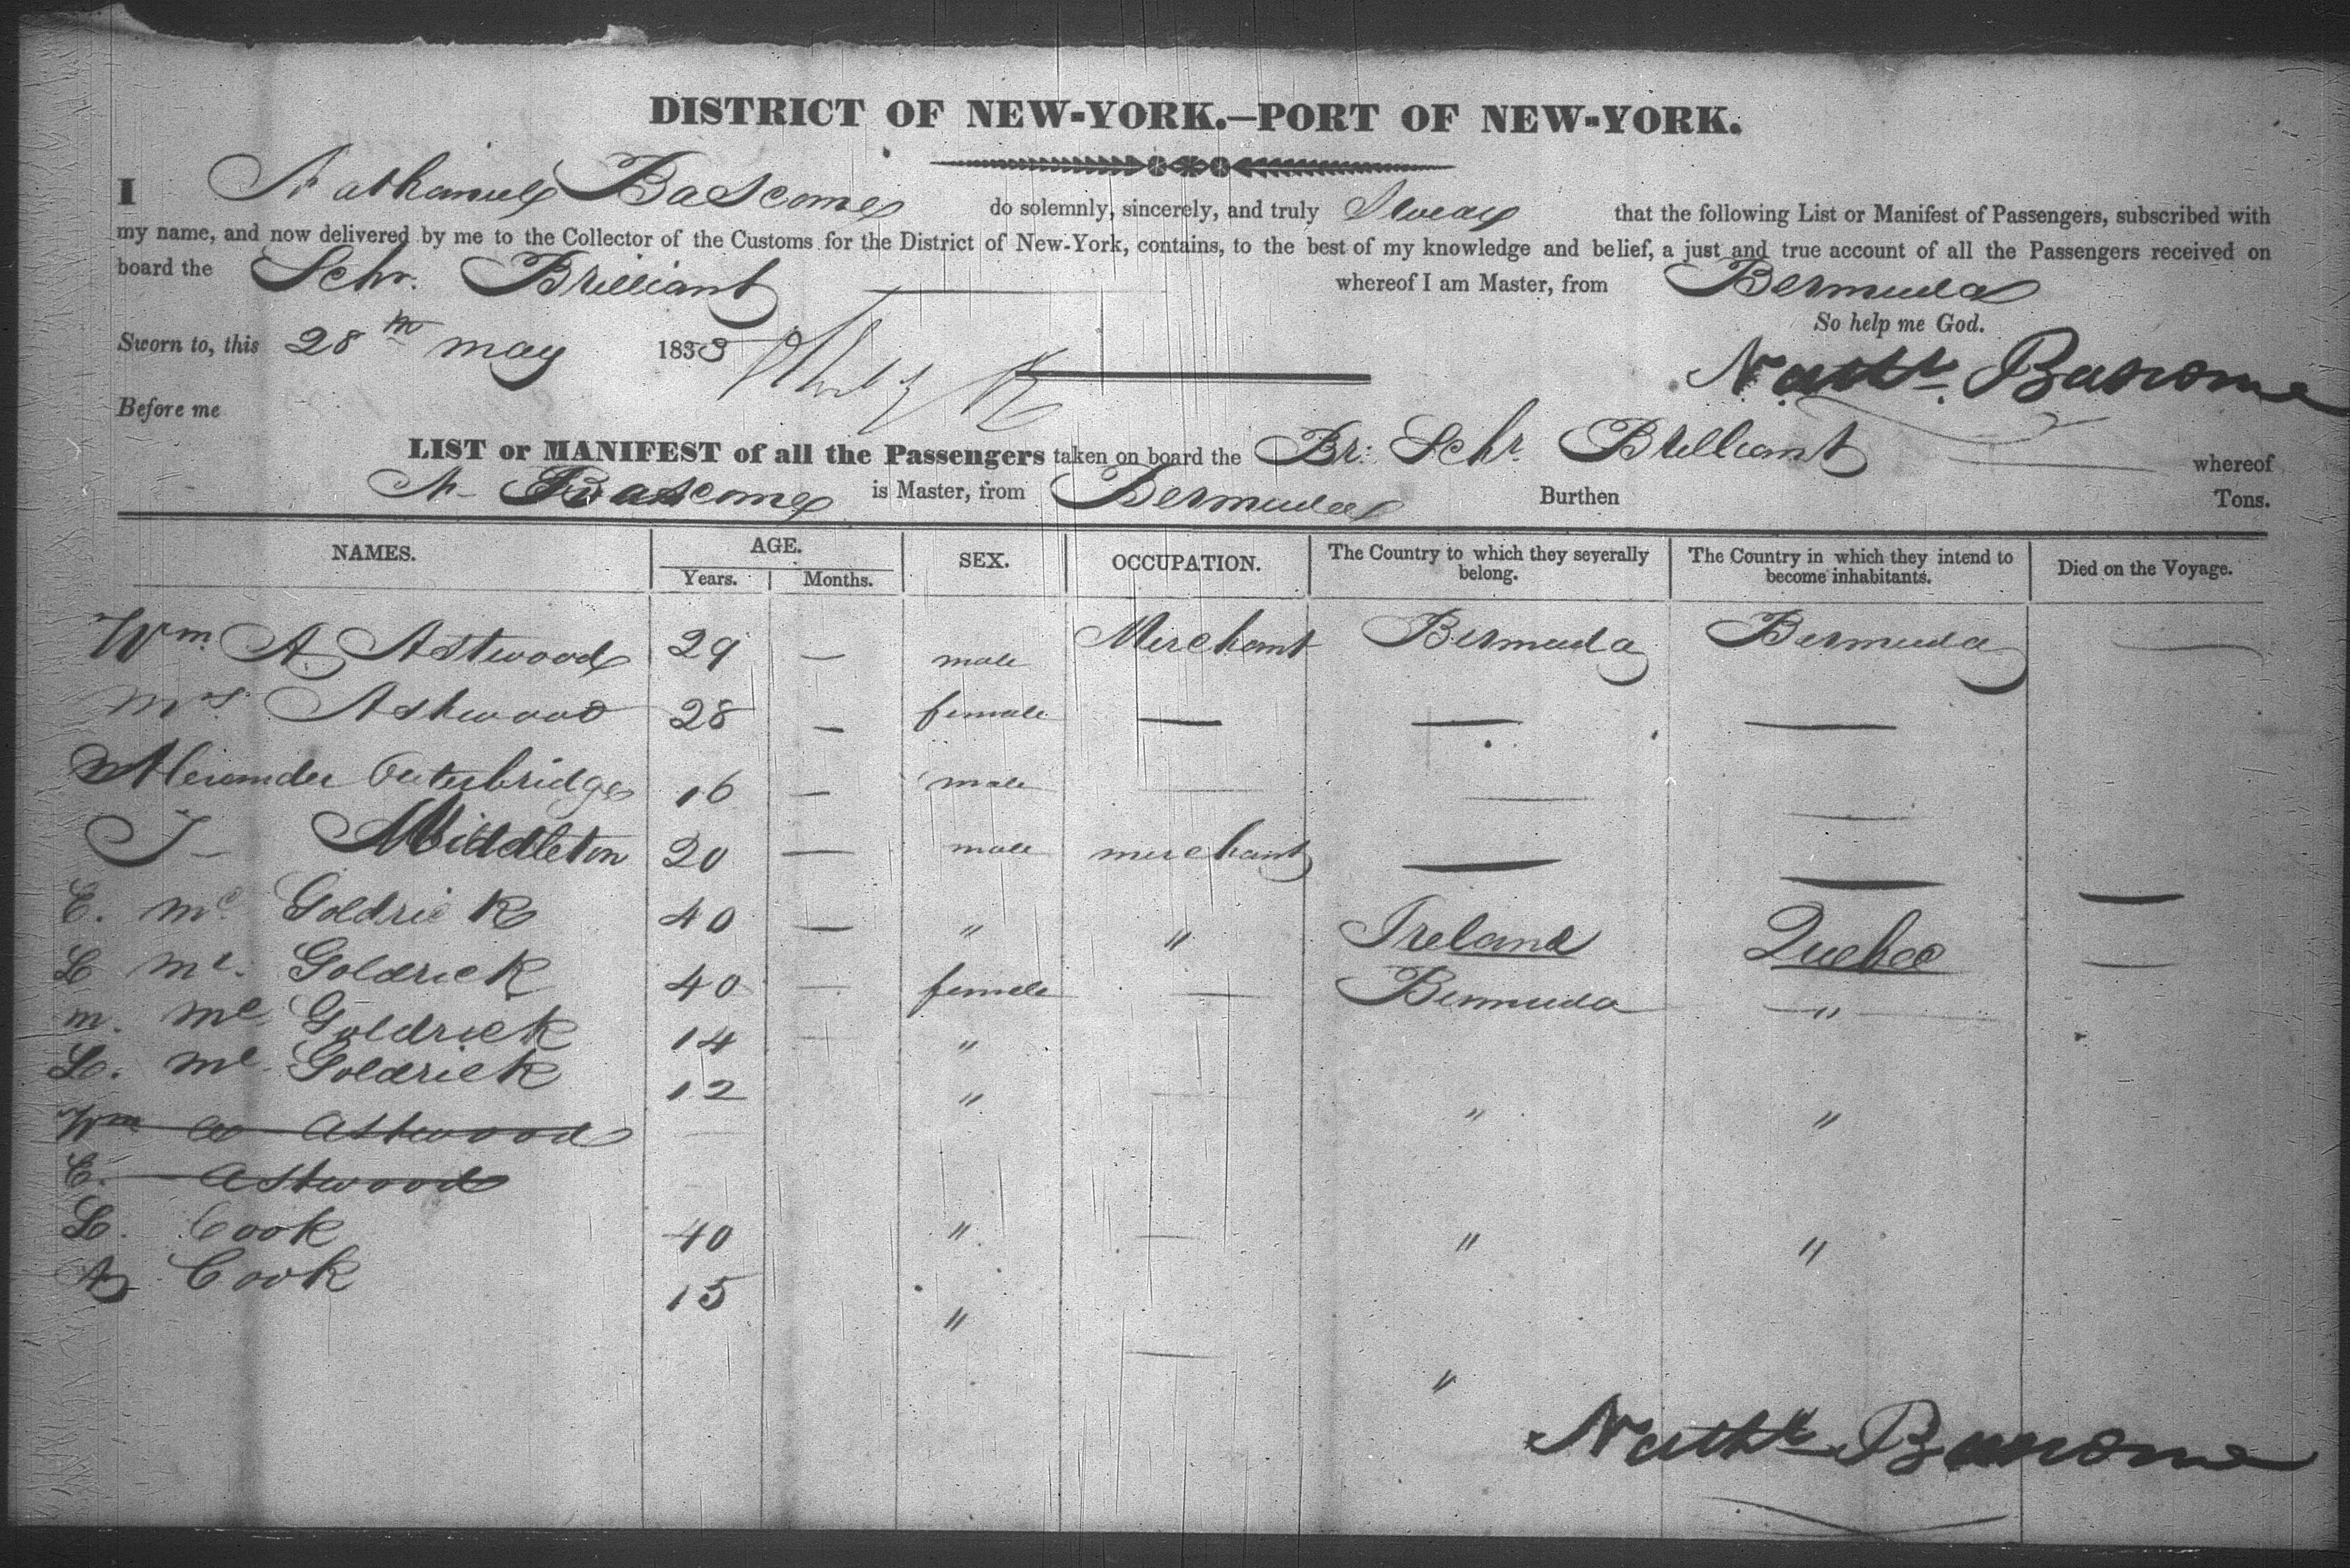 DISTRICT OF NEW-YORK.—PORT OF NEW-YORK.
I Nathaniel Bascome do solemnly, sincerely, and truly Swear that the following List or Manifest of Passengers, subscribed with
my name, and now delivered by me to the Collector of the Customs for the District of New-York, contains, to the best of my knowledge and belief, a just and true account of all the Passengers received on
board the Schr. Brilliant whereof I am Master, from Bermuda
So help me God.
Sworn to, this 28th may 1833
Nathl. Bascome
Before me
LIST or MANIFEST of all the Passengers taken on board the Br: Schr Brilliant whereof
N- Bascome is Master, from Bermuda Burthen Tons.
NAMES. AGE. Years. Months. SEX. OCCUPATION. The Country to which they severally belong. The Country in which they intend to become inhabitants. Died on the Voyage.
Wm. A Astwood 29 — male Merchant Bermuda Bermuda —
Mrs. Astwood 28 — female — — —
Alexander Outerbridge 16 — male — — —
J — Middleton 20 — male merchant — — —
E. Mc Goldrick 40 — " " Ireland Quebec —
L Mc. Goldrick 40 — female — Bermuda "
m. Mc Goldrick 14 — "
L. Mc Goldrick 12 " — " "
Wm a Astwood —
E. Astwood
L. Cook 40 " — " "
A Cook 15 " — "
Nathl Bascome